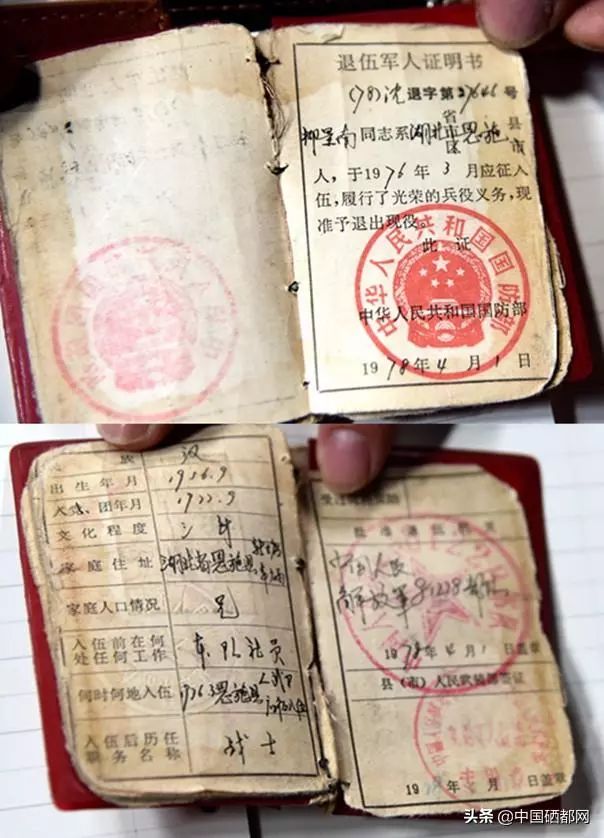 退伍军人证明书
(78)沈退字第27646号
同志系湖北省市区恩施县市
人，于1976年3月应征入
伍，履行了光荣的兵役义务，现
准予退出现役。
此证
中华人民共和国国防部
中华人民共和国国防部
1978年4月1日
族 汉
出生年月 1956.9
入党、团年月
文化程度
家庭住址 湖北省恩施县
家庭人口情况 兄
入伍前在何处任何工作 社员
何时何地入伍 1976 恩施县
入伍后历任职务名称 战士
中国人民
解放军81228部队
1978年4月1日盖章
县（市）人民武装部签证
19 年 月 日盖章
头条 @中国硒都网